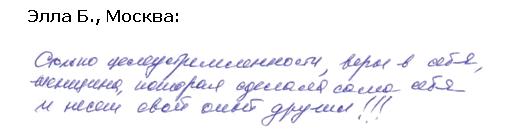 Элла Б., Москва:
Столько целеустремленности, веры в себя,
женщина, которая сделала сама себя
и несет свой опыт другим!!!